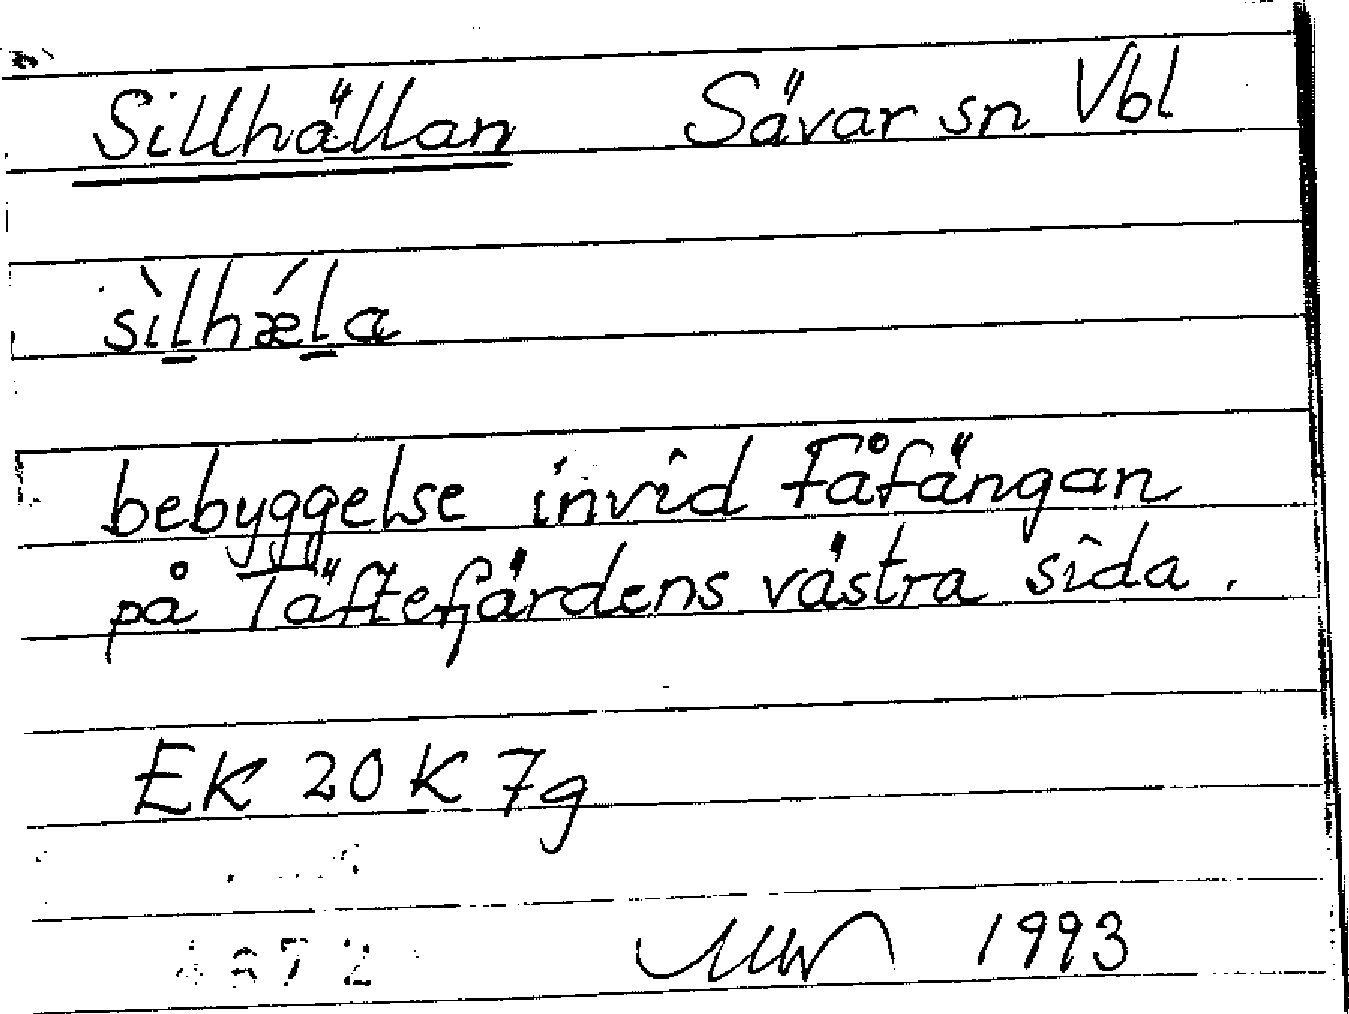 Sillhällan Sävar sn Vbl
sìl̲hǽl̲a
bebyggelse invid Fåfängan
på Täftefjärdens västra sida.
EK 20 K 7g
1993